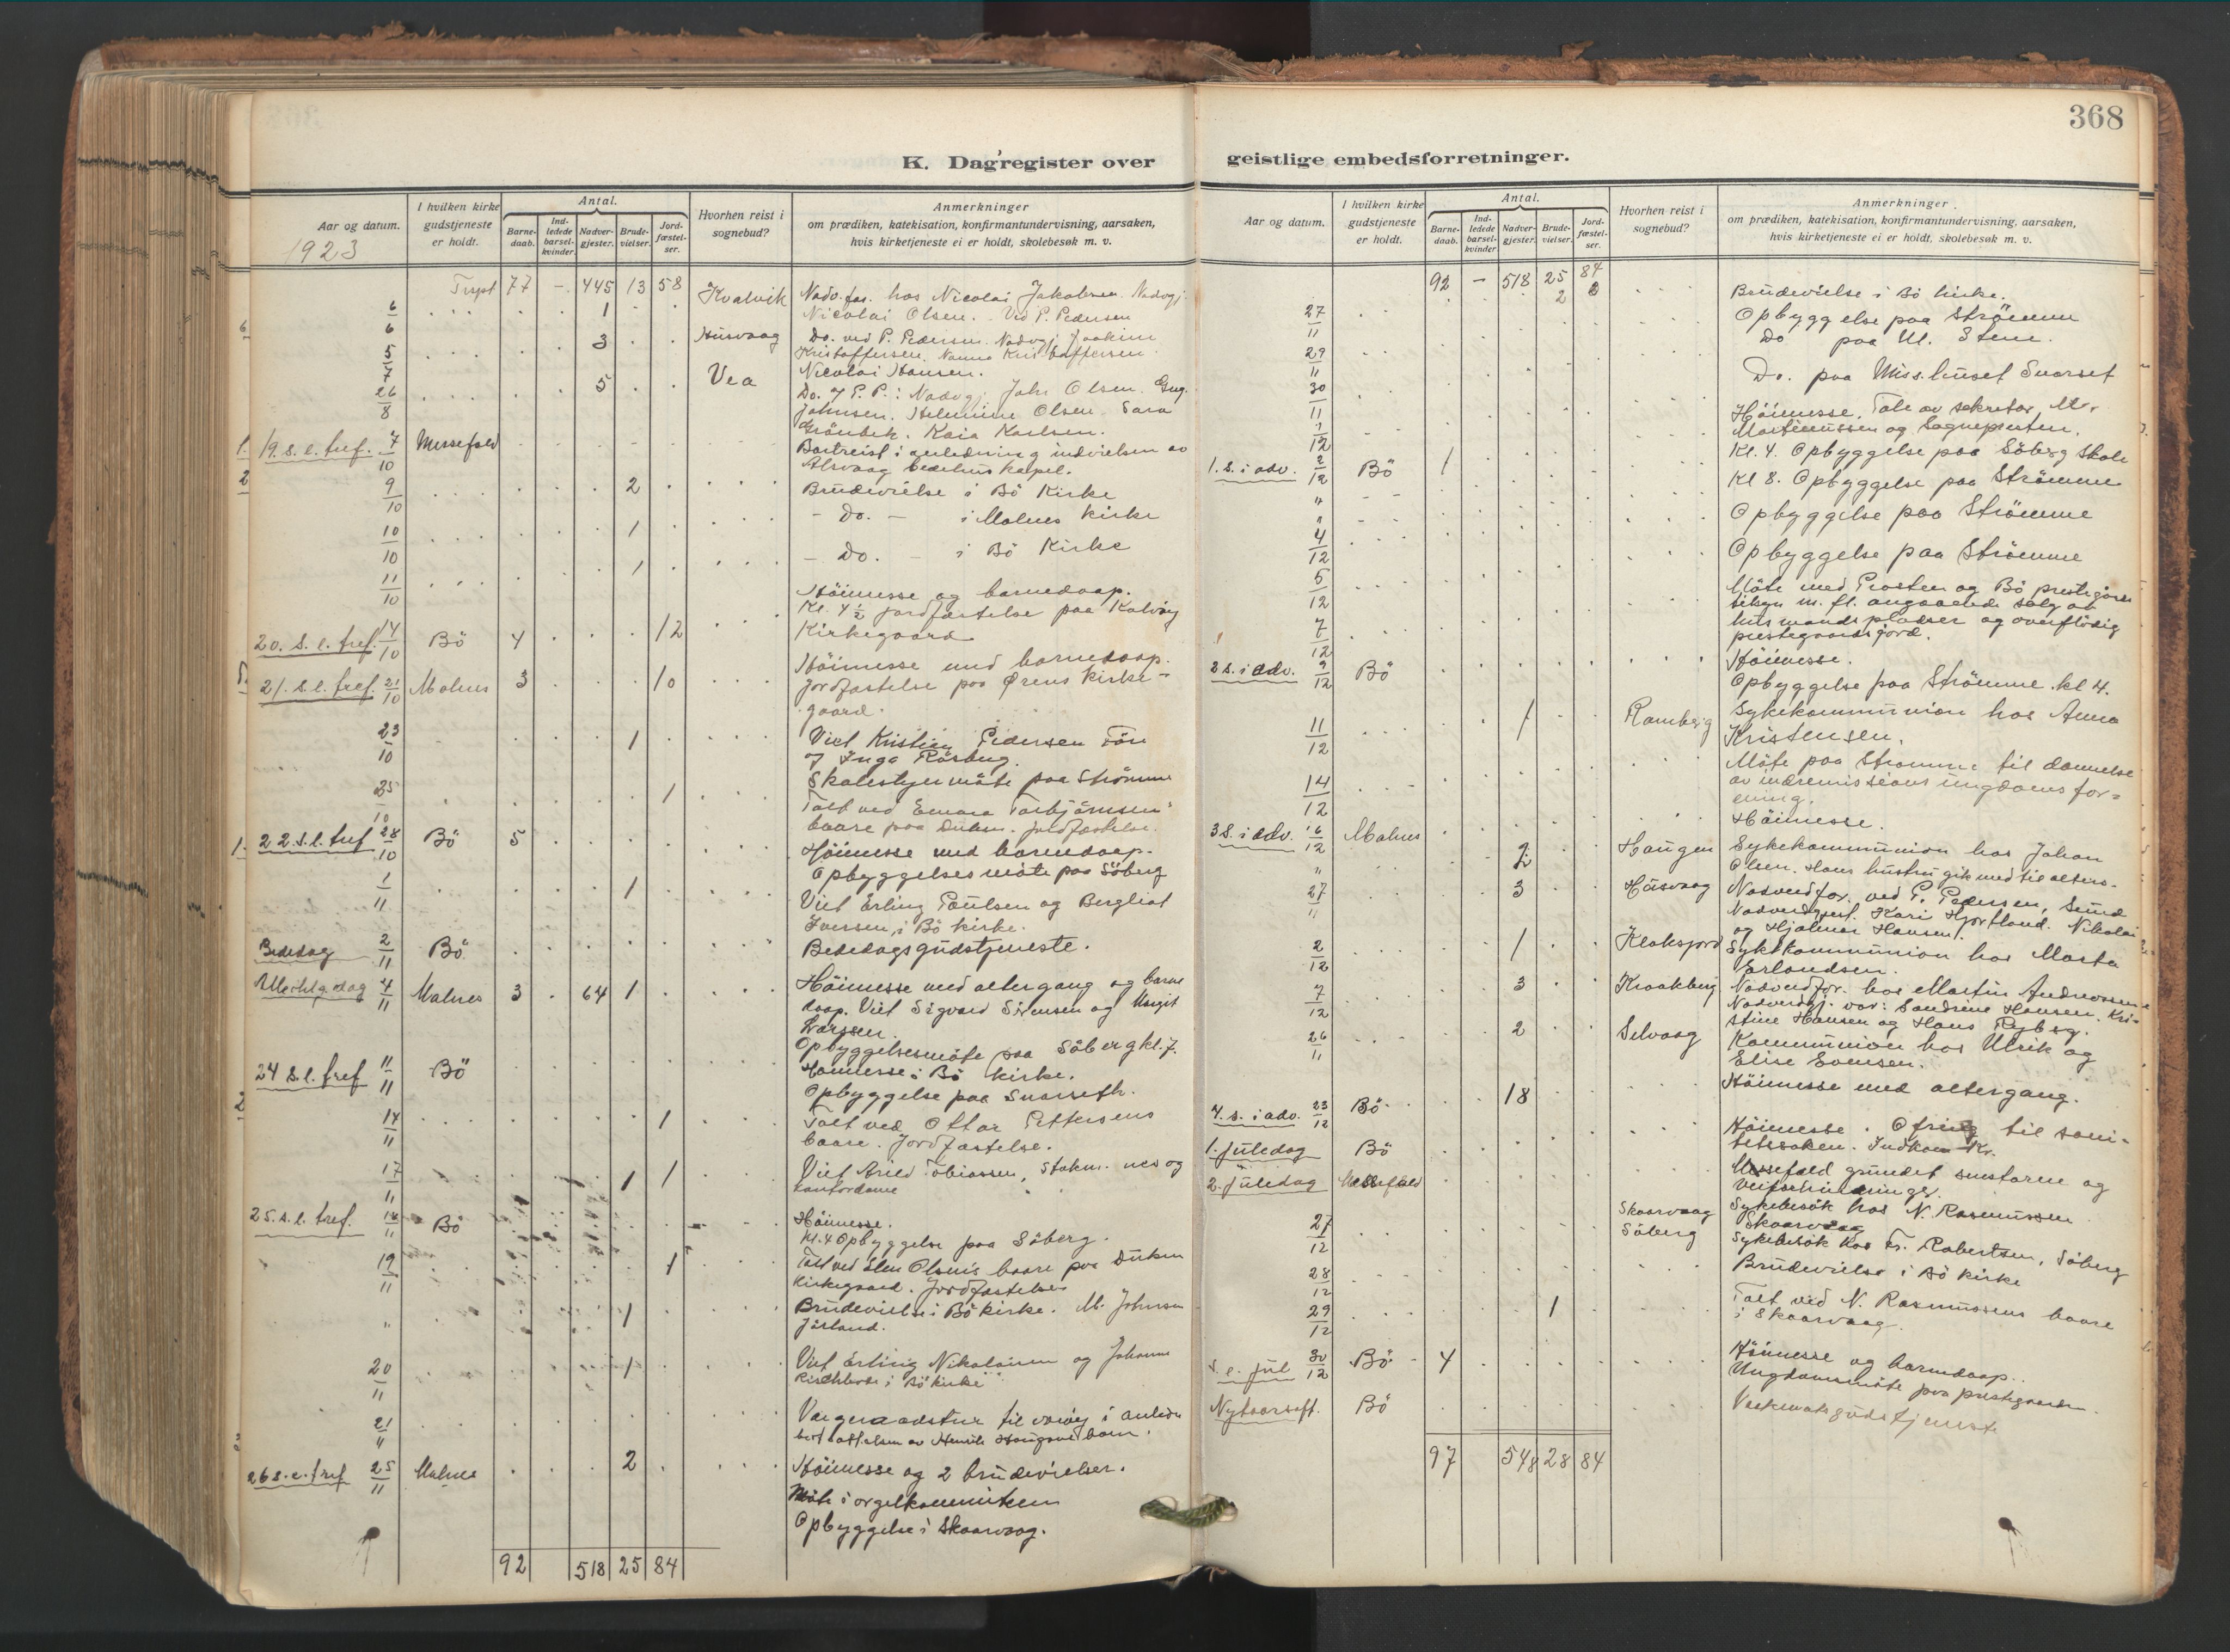 368
K. Dagregister over geistlige embedsforretninger.
Aar og datum.
1923
I hvilken kirke gudstjeneste er holdt.
Antal.
Barne-daab.
Ind-ledede barsel-kvinder.
Nadver-gjester.
Brude-vielser.
Jord-fæstel-ser.
Hvorhen reist i sognebud?
Anmerkninger
om prædiken, katekisation, konfirmantundervisning, aarsaken,
hvis kirketjeneste ei er holdt, skolebesøk m. v.
77 - 445 13 58 Kvalvik Nadv.for. hos Nicolai Jakobsen. Nadvgj.
6/6 1 Nicolai Olsen. Ved P. Pedersen
5/7 3 Husvaag Do. ved P. Pedersen. Nadvgj. Joakim
Kristoffersen. Nanna Kristoffersen
Nicolai Hansen.
26/8 5 Vea Do. P. P.: Nadvgj. Joh. Olsen.
Johnsen. Helmine Olsen. Sara
Grönbek. Kaia Karlsen.
19. s. e. tref. 7/10 Messefald Bortreist i anledning indvielsen av
Alsvaag bedehuskapel.
9/10 2 Brudevielse i Bö Kirke
10/10 1 - Do. - i Malnes kirke
11/10 1 - Do. - i Bö Kirke
20. s. e. tref. 14/10 Bö 4 12 Höimesse og barnedaap.
Kl. 4 1/2 jordfæstelse paa Kalvöy
Kirkegaard
21. s. e. tref. 21/10 Malnes 3 10 Höimesse med barnedaap.
Jordfæstelse paa Ørens kirke-
gaard.
23/10 1 Viet Kristian Pedersen
og Inga
25/10 1 Skolestyremöte paa Strömme
Talt ved Torbjörnsens
baare paa jordfæstelse.
22. s. e. tref 28/10 Bö 5 Höimesse med barnedaap.
Opbyggelsesmöte paa Söberg
1/11 1 Viet Erling Paulsen og Bergliot
Iversen, i Bö kirke.
Bededag 2/11 Bö Bededagsgudstjeneste.
4/11 Malnes 3 64 1 Höimesse med altergang og barne
daap. Viet Sigvard Sörensen og Margit
Larssen.
Opbyggelsesmöte paa Söberg kl. 7.
24 s. e. tref 11/11 Bö Höimesse i Bö kirke.
Opbyggelse paa
14/11 1 Talt ved Ottar Pettersens
baare. Jordfæstelse.
17/11 1 1 Viet Arild Tobiassen,
25. s. e. tref. 18/11 Bö Höimesse.
Kl. 4 Opbyggelse paa Söberg.
19/11 1 Talt ved Elen Olsens baare paa
Kirkegaard. Jordfæstelse
" 1 Brudevielse i Bö kirke. M. Johnsen
20/11 1 Viet Erling Nikolaisen og Johanne
i Bö kirke
21/11
26 s. e. tref 25/11 Malnes 2 Höimesse og 2 brudevielser.
Möte i orgelkommiteen
Opbyggelse i Skaarvaag.
92 518 25 84
Aar og datum.
I hvilken kirke gudstjeneste er holdt.
Antal.
Barne-daab.
Ind-ledede barsel-kvinder
Nadver-gjester.
Brude-vielser.
Jord-fæstel-ser.
Hvorhen reist i sognebud?
Anmerkninger
om prædiken, katekisation, konfirmantundervisning, aarsaken,
hvis kirketjeneste ei er holdt, skolebesøk m. v.
92 - 518 25 84
2 Brudevielse i Bö kirke.
27/11 Opbyggelse paa Strömme
Do paa
29/11 Do. paa Misshuset
30/11 Höimesse. Tale av sekretær
Martinussen og Sognepresten.
1/12
1. s. i adv. 2/12 Bö 1 Kl. 4. Opbyggelse paa Söberg skole
" Kl 8. Opbyggelse paa Strömme
" Opbyggelse paa Strömme
4/12 Opbyggelse paa Strömme
5/12 Möte med Prosten og Bö
tilsyn m. fl. angaaende salg av
husmandspladser og overflödig
prestegaardsjord.
7/12
2 s. i adv. 9/12 Bö Höimesse.
Opbyggelse paa Strömme. kl 4.
11/12 1 Ramberg Sykekommunion hos Anna
Kristensen.
14/12 Möte paa Strömme til dannelse
av indremissions ungdomsfor-
ening.
3 s. i adv. 16/12 Malnes Höimesse.
" 2 Haugen Sykekommunion hos Johan
Olsen. Hans hustru gik med til alters.
27/11 3 Husvaag Nadverdfor. ved P. Pedersen, Sund
Nadverdgjest. Kari Hjortland. Nikolai
og Hjalmar Hansen.
2/12 1 Klaksjord Sykekommunion hos Marta
Erlandsen.
7/12 3 Kraakberg Nadverdfor. hos Martin Andreassen
Nadverdgj. var: Sandrine Hansen. Kri-
stine Hansen og Hans Ryberg.
26/11 2 Selvaag Kommunion hos Ulrik og
Elise Evensen.
4. s. i adv. 23/12 Bö 18 Höimesse med altergang.
1. juledag Bö Höimesse. Ofring til sani-
tetssaken. Indkom Kr.
2. juledag Messefald Messefald grundet snestorm og
veiforhindringer.
27/12 Skaarvaag Sykebesök hos N. Rasmussen
Skaarvaag
Söberg Sykebesök hos Fr. Robertsen, Söberg
28/12 Brudevielse i Bö kirke
29/12 1 Talt ved N. Rasmussens baare
i Skaarvaag.
s. e. jul 30/12 Bö 4 Höimesse og barnedaap.
Ungdomsmöte paa prestegaarden.
Nytaarsaft. Bö
97 548 28 84